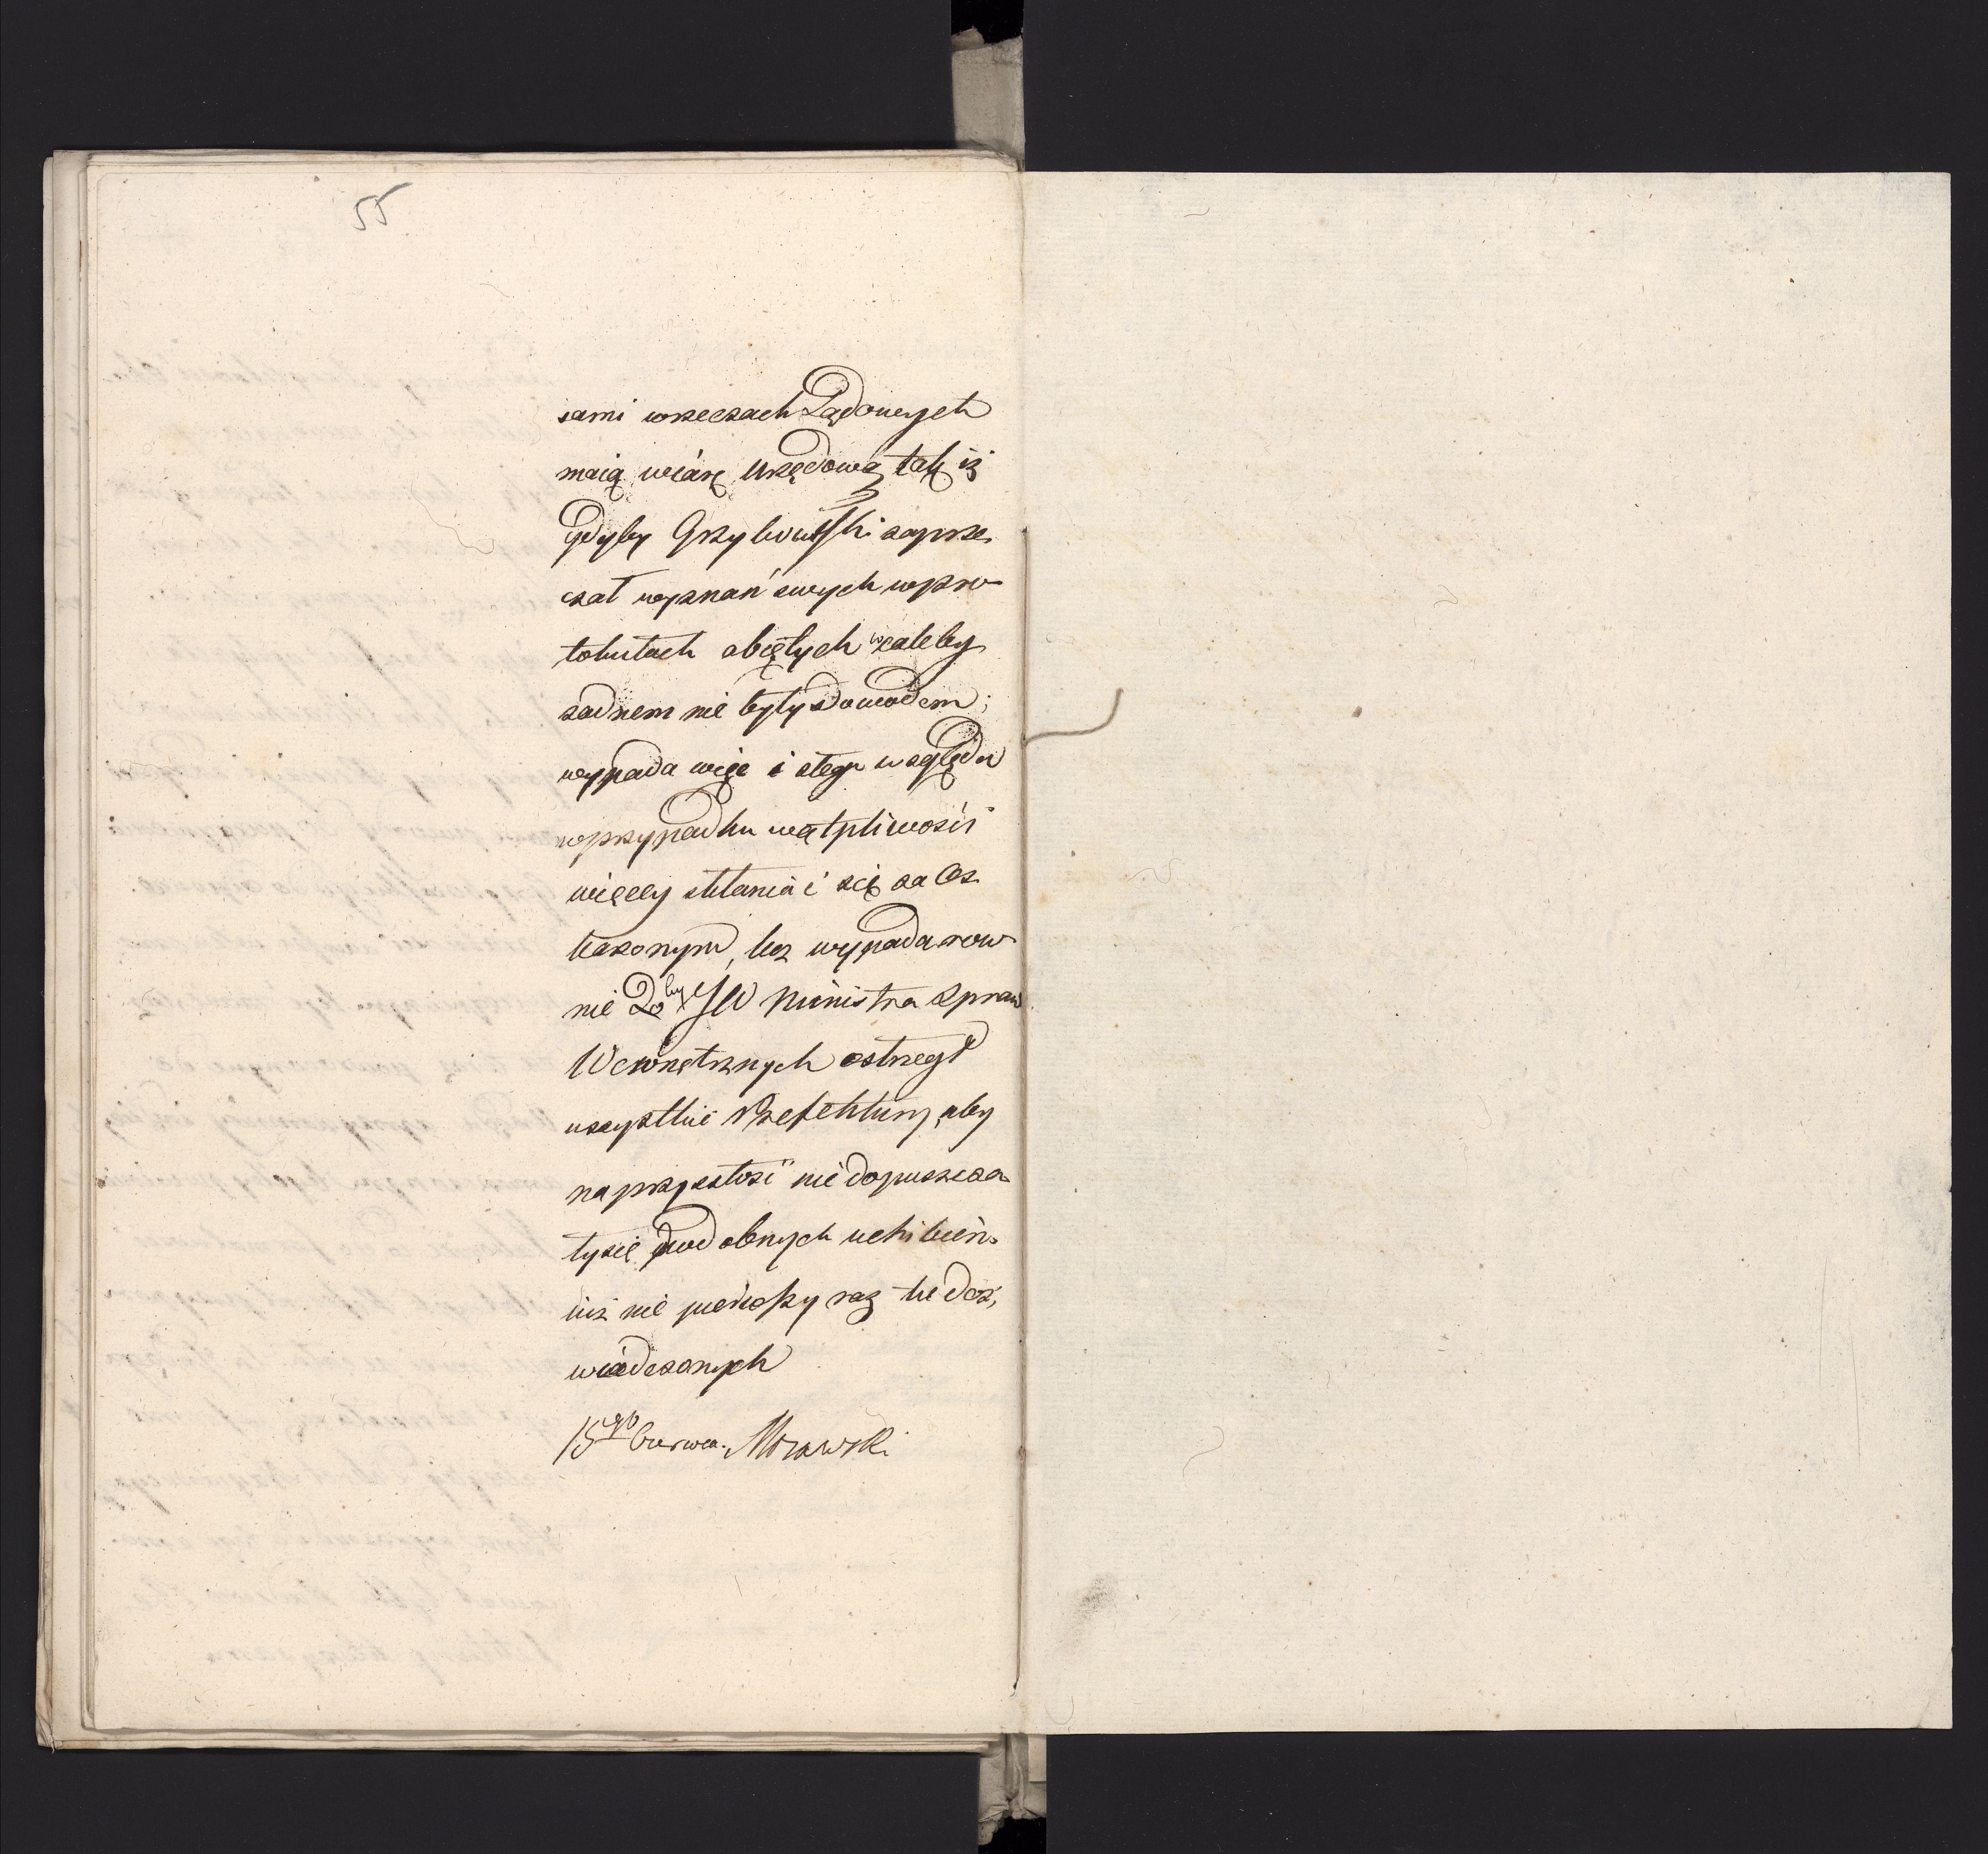 55
sami wrzeczach Sądowych
maią wiarę Urzędową tak iż
gdyby Grzybowski zaprze
czał wyznań swych wpro
tokułach obiętych wcaleby
żadnem nie były dowodem;
wypada więc i ztego względu
wprzypadku wątpliwości
więcey skłaniać się za Os
karzonym, lecz wypada row
nie by JW Ministra Spraw
Wewnętrznych ostrzegł
wszystkie Prefektury, aby
naprzyszłość nie dopuszcza
ły się podobnych uchibień
iuż nie pierwszy raz tu doś,
wiadczonych
15go Czerwca. Morawski